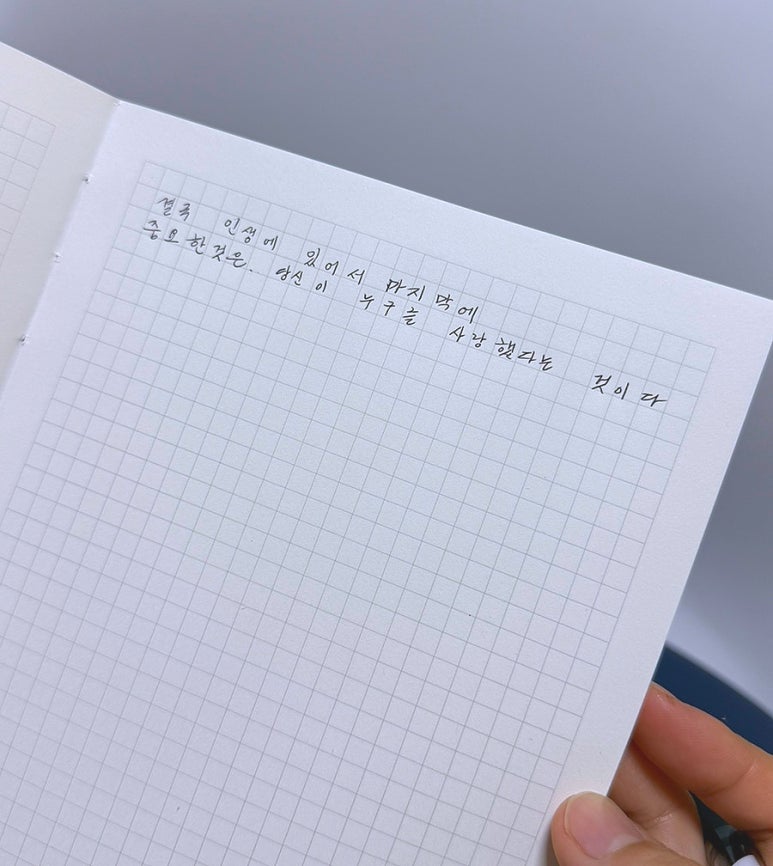 결국 인생에 있어서 마지막에
중요한것은. 당신이 누구를 사랑했다는 것이다